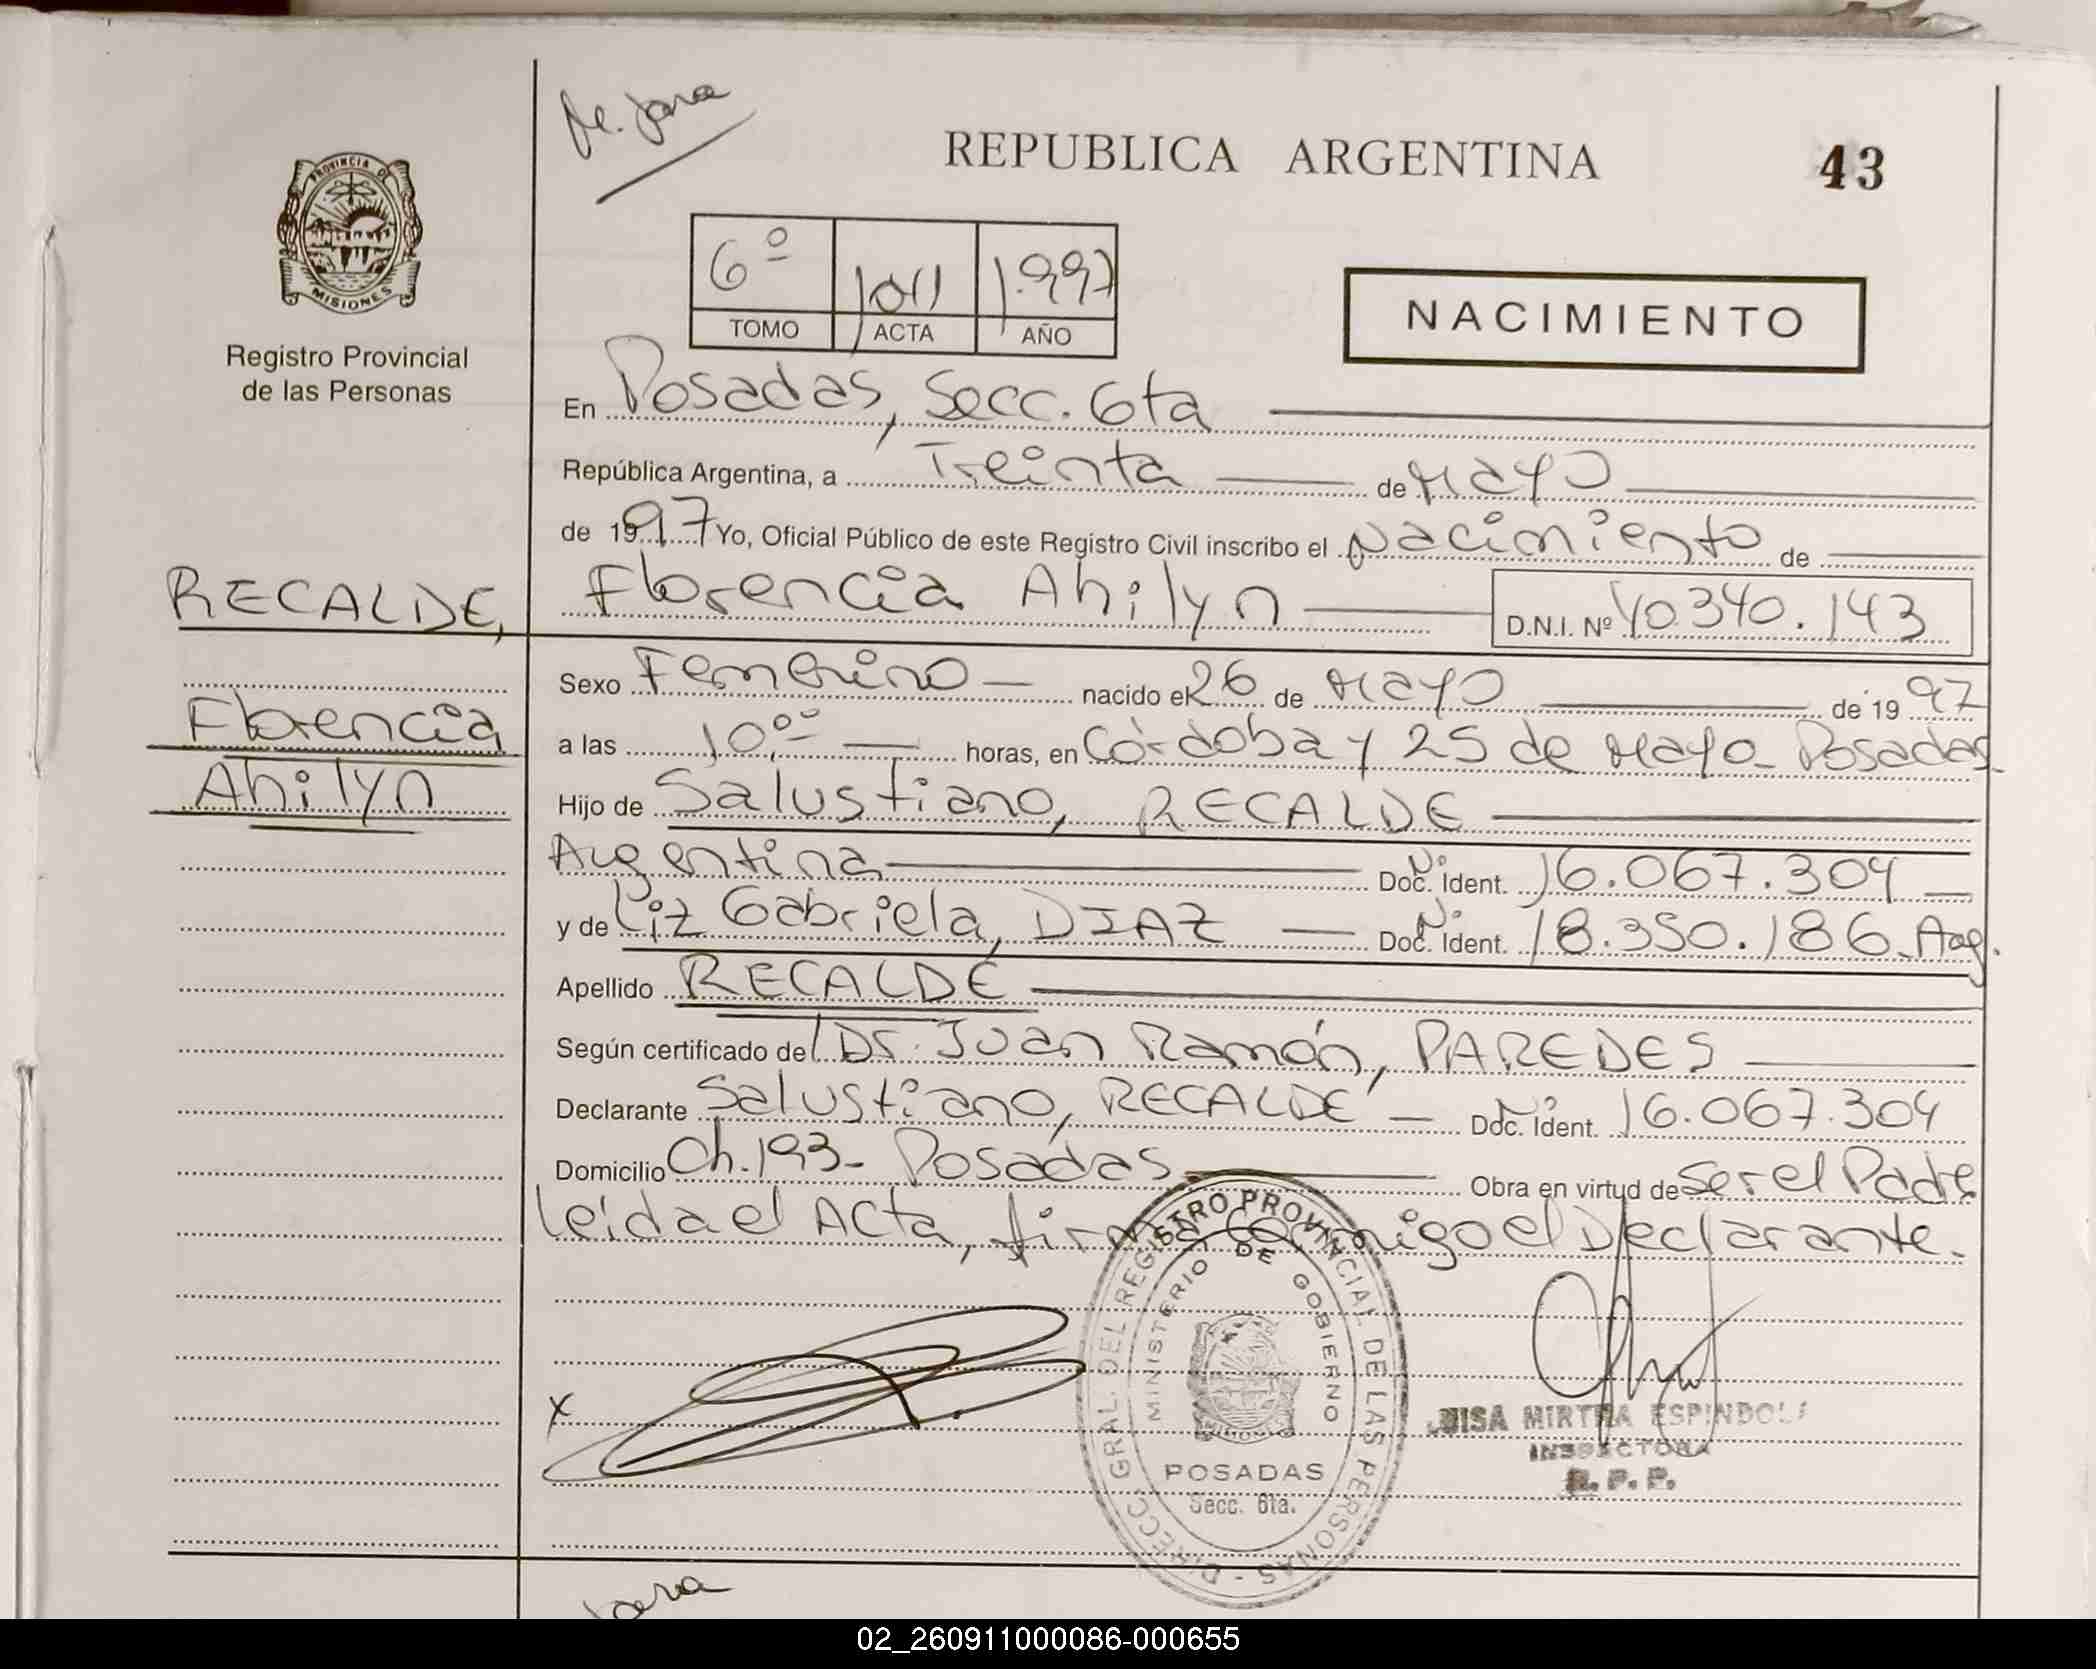 M. Jara
REPUBLICA ARGENTINA
43
PROVINCIA DE
MISIONES
Registro Provincial
de las Personas
6º 1011 1.997
TOMO ACTA AÑO
NACIMIENTO
En Posadas, Secc. 6ta
República Argentina, a Treinta de Mayo
de 1997 Yo, Oficial Público de este Registro Civil inscribo el Nacimiento de
RECALDE,
Florencia Ahilyn D.N.I. Nº 40.340.143
Florencia
Ahilyn
Sexo Femenino nacido el 26 de Mayo de 1997
a las 10.00 horas, en Córdoba y 25 de Mayo - Posadas-
Hijo de Salustiano, RECALDE
Argentina Nº Doc. Ident. 16.067.304
y de Liz Gabriela, DIAZ Nº Doc. Ident. 18.350.186. Arg.
Apellido RECALDE
Según certificado del Dr. Juan Ramón, PAREDES
Declarante Salustiano, RECALDE Nº Doc. Ident. 16.067.304
Domicilio Ch. 193- Posadas Obra en virtud de Ser el Padre
Leída el Acta, firma conmigo el Declarante.
x
DIRECC. GRAL. DEL REGISTRO PROVINCIAL DE LAS PERSONAS -
MINISTERIO DE GOBIERNO
POSADAS
Secc. 6ta.
LUISA MIRTHA ESPINDOLA
INSPECTORA
R. P. P.
Jara
02_260911000086-000655